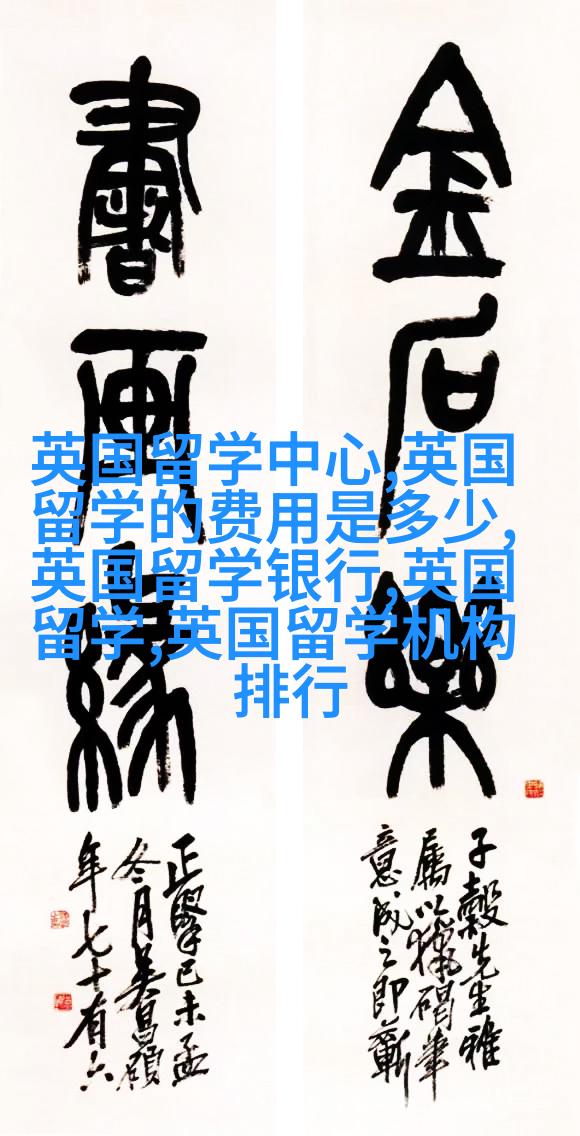 金石樂
書画緣
子穀先生雅
屬以獵碣筆
意成之即蘄
正擘己未孟
冬月吳昌碩
年七十有六
英国留学中心,英国
留学的费用是多少,
英国留学银行,英国
留学,英国留学机构
排行